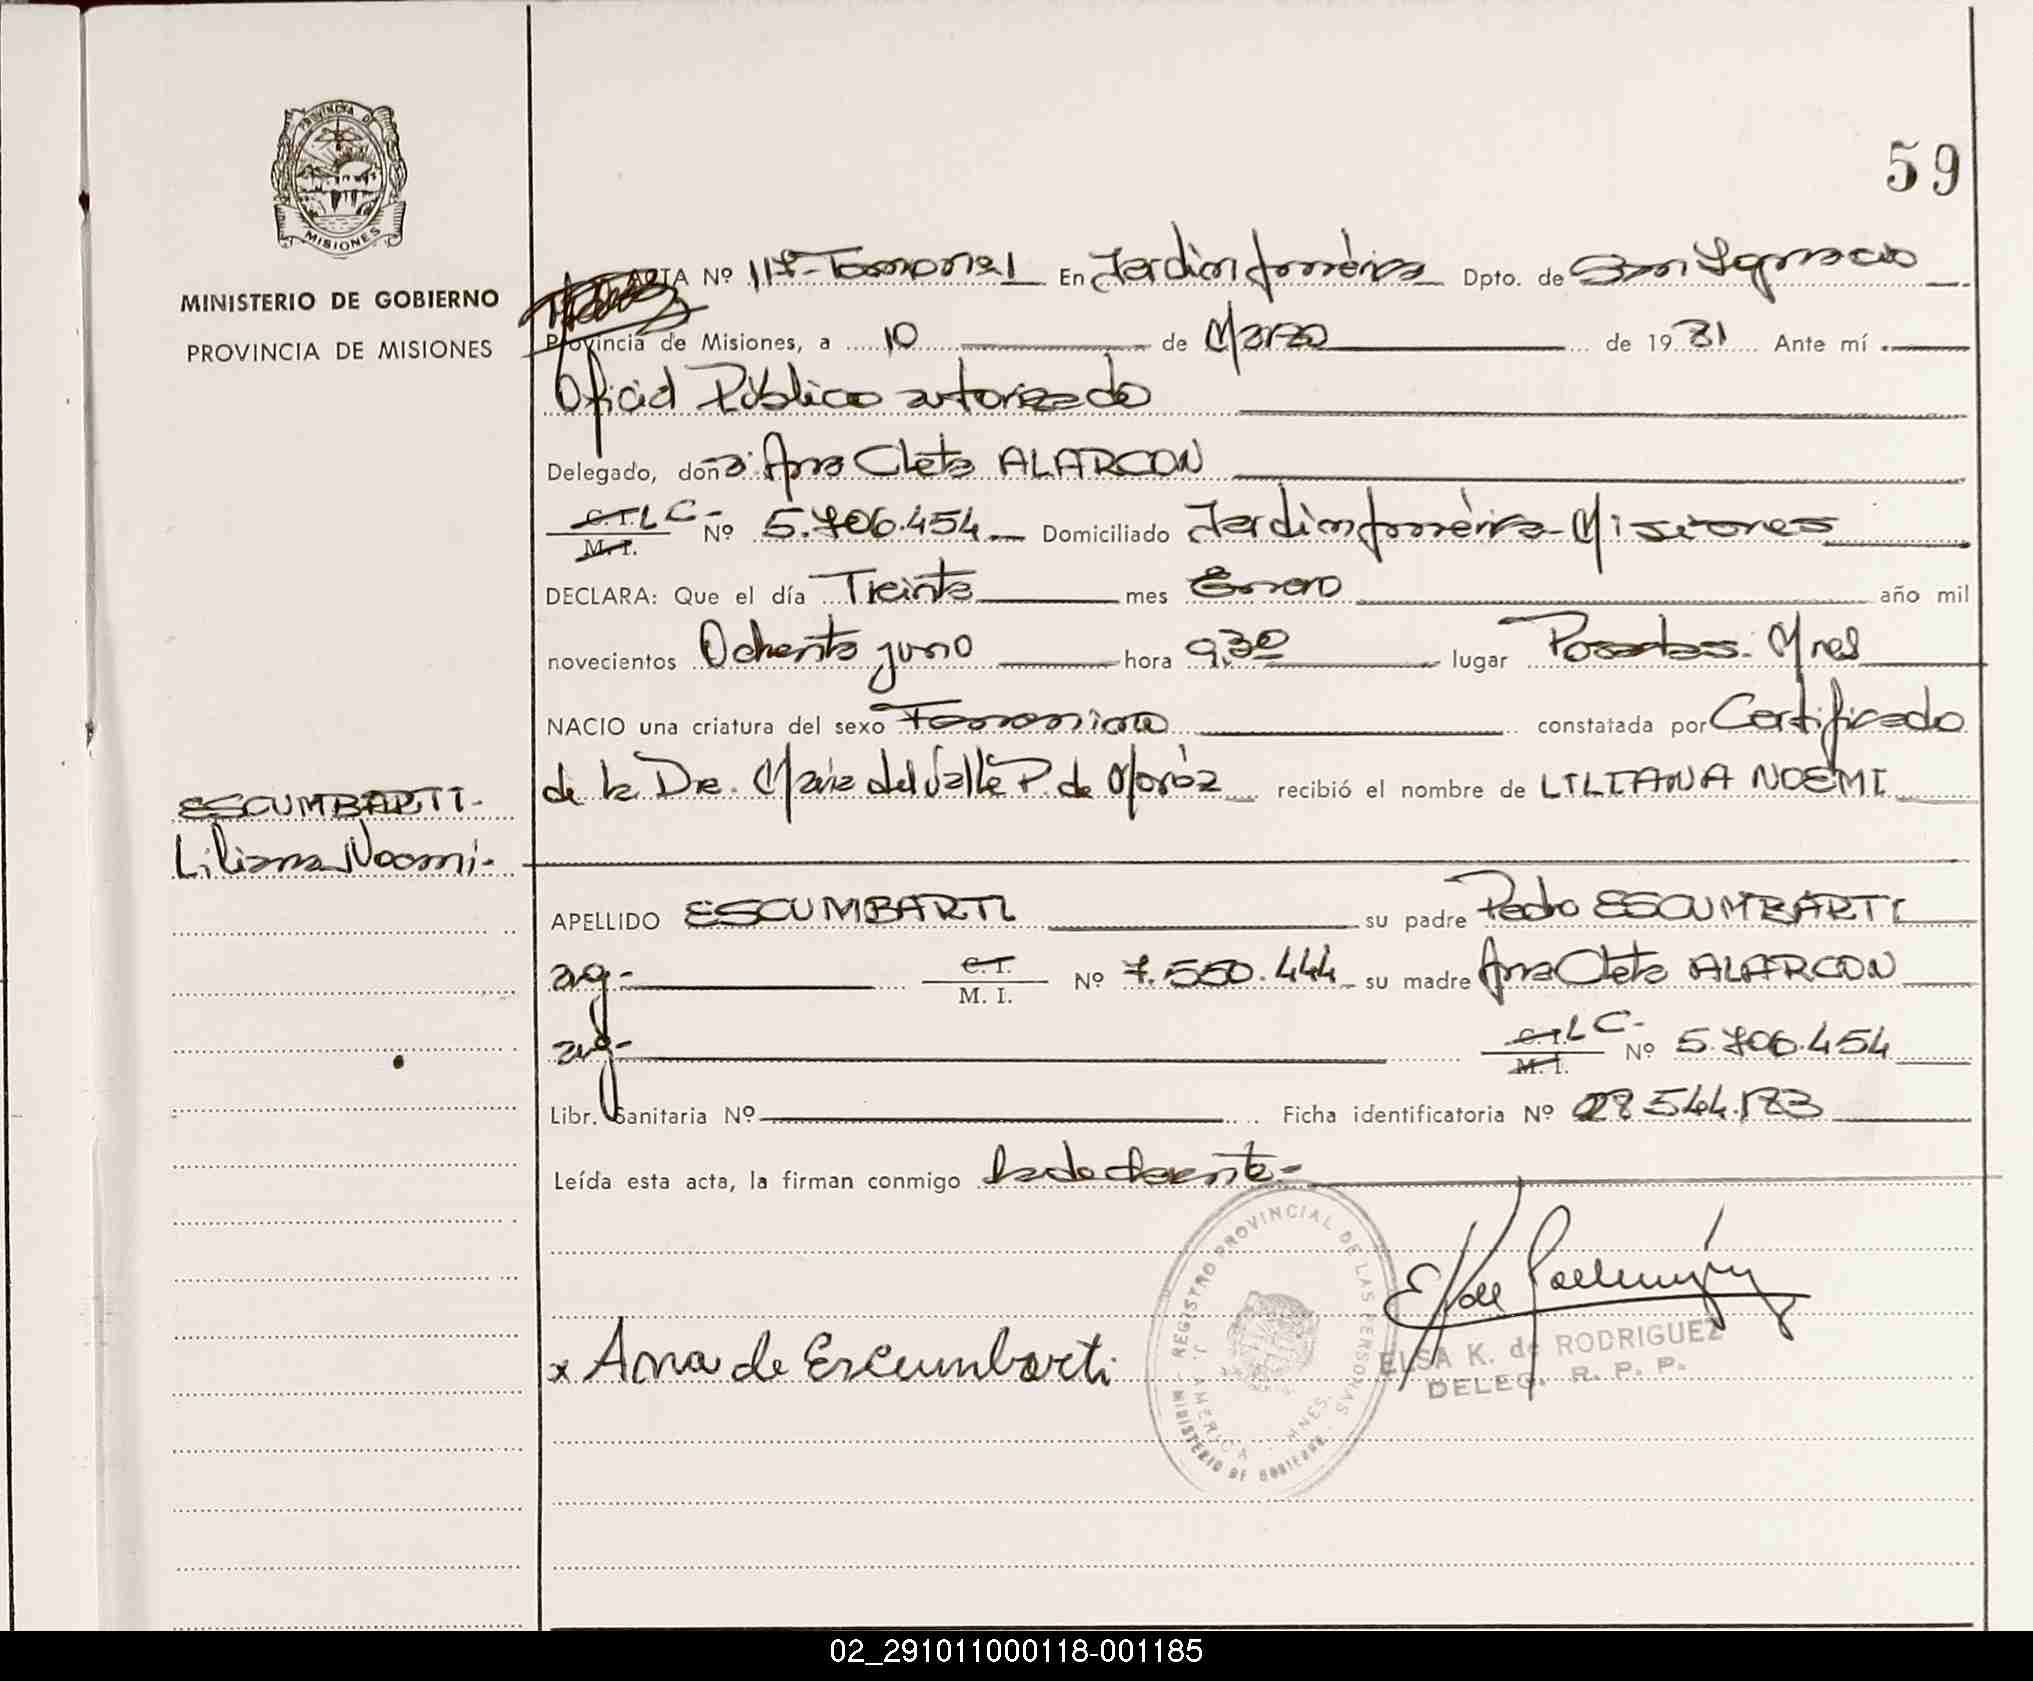 59
PROVINCIA DE
MISIONES
MINISTERIO DE GOBIERNO
PROVINCIA DE MISIONES
ACTA Nº 117- Tomo Nº 1 En Jardin América Dpto. de San Ignacio
Provincia de Misiones, a 10 de Marzo de 1981 Ante mí
Oficial Público autorizado
Delegado, doña Ana Cleta ALARCON
C.I. L C- Nº 5.706.454 Domiciliado Jardin América- Misiones
M. I.
DECLARA: Que el día Treinta mes Enero año mil
novecientos Ochenta y uno hora 9,30 lugar Posadas- Mnes
NACIO una criatura del sexo Femenino constatada por Certificado
de la Dra. Maria del Valle P. de recibió el nombre de LILIANA NOEMI
ESCUMBARTI-
Liliana Noemi-
APELLIDO ESCUMBARTI su padre Pedro ESCUMBARTI
arg- C. I. Nº 7.550.444 su madre Ana Cleta ALARCON
M. I.
arg- C.I. L C- Nº 5.706.454
M. I.
Libr. Sanitaria Nº Ficha identificatoria Nº 28.544.183
Leída esta acta, la firman conmigo la declarante-
REGISTRO PROVINCIAL DE LAS PERSONAS
MINISTERIO DE GOBIERNO
J. AMERICA - MNES.
x Ana de Escumbarti
ELSA K. de RODRIGUEZ
DELEG. R. P. P.
02_291011000118-001185